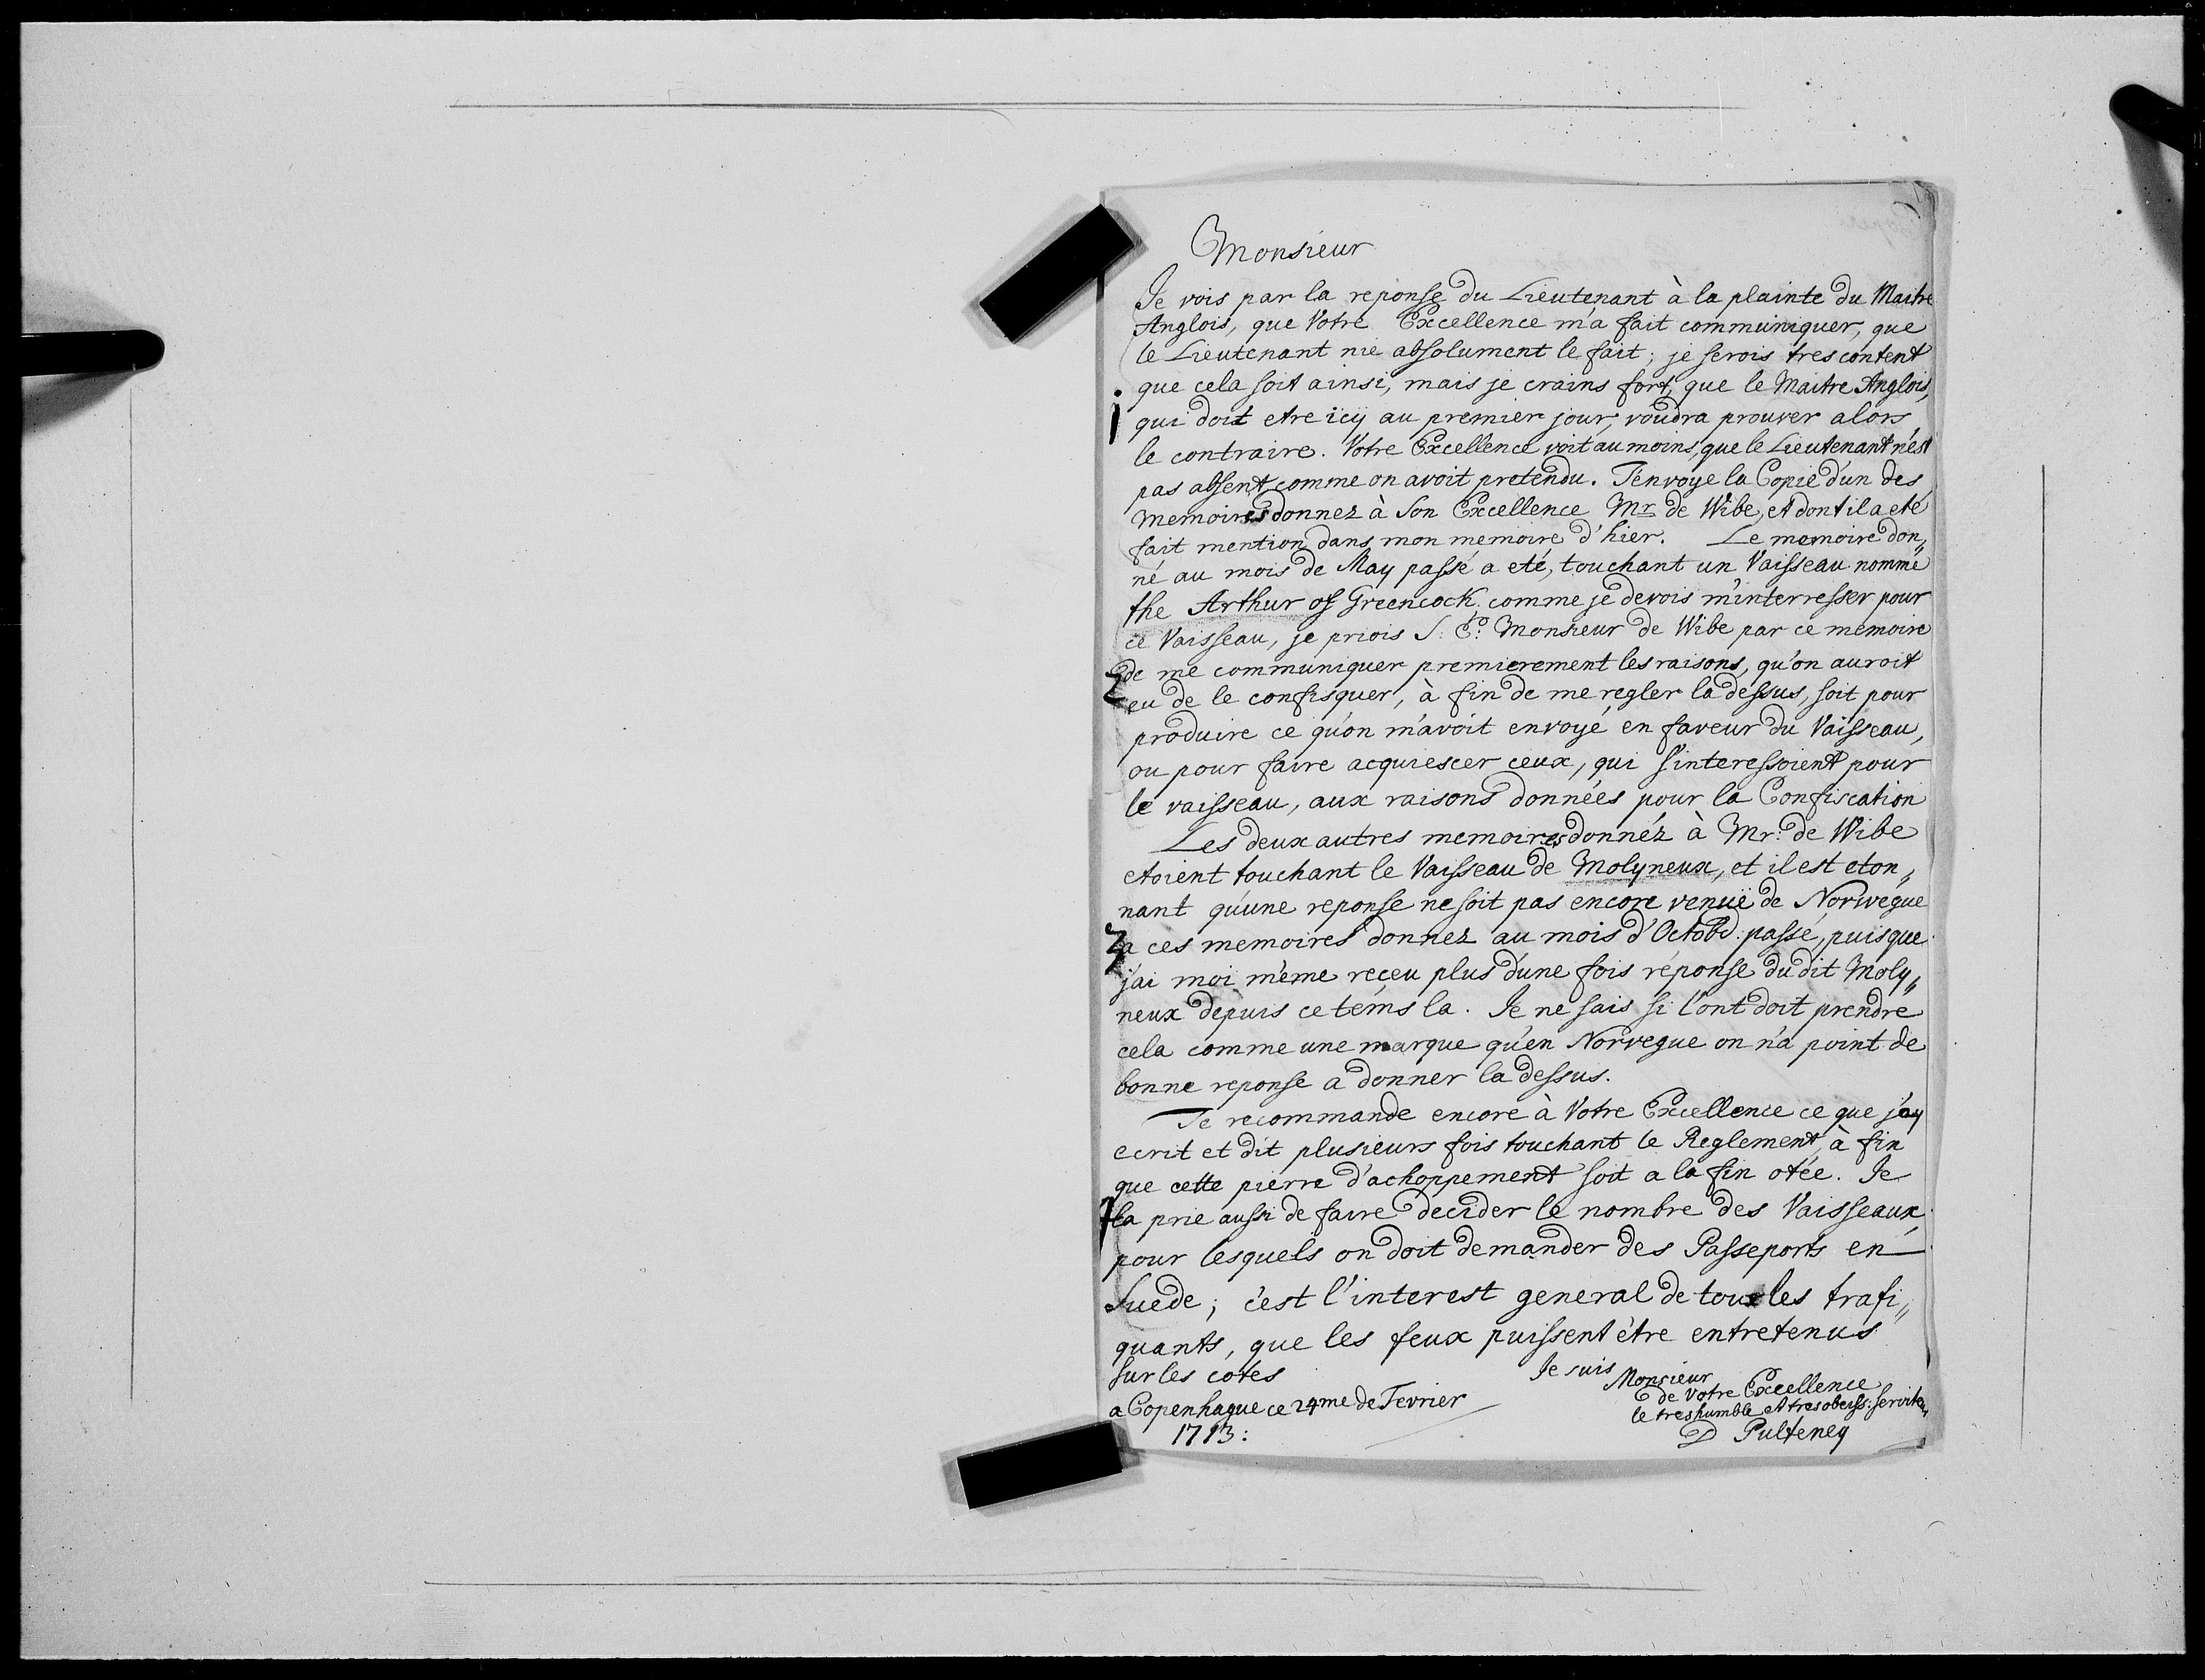 Monsieur
Je vois par la reponse du Lieutenant à la plainte du Maitre
Anglois, que Votre Excellence m'a fait communiquer, que
le Lieutenant nie absolument le fait; je serois tres content
que cela soit ainsi, mais je crains fort, que le Maitre Anglois,
1 qui doit etre icy au premier jour, voudra prouver alors
le contraire. Votre Excellence voit au moins, que le Lieutenant n'est
pas absent, comme on avoit pretendu. J'envoye la Copie d'un des
memoires donnez à Son Excellence Mr de Wibe, et dont il a eté
fait mention dans mon memoire d'hier. Le memoire don„
né au mois de May passé a eté, touchant un Vaisseau nommé
the Arthur of Greencock. comme je devois m'interresser pour
ce Vaisseau, je priois S: E: Monsieur de Wibe par ce memoire
2 de me communiquer premierement les raisons, qu'on auroit
eu de le confisquer, à fin de me regler la dessus, soit pour
produire ce qu'on m'avoit envoyé en faveur du Vaisseau,
ou pour faire acquiescer ceux, qui s'interessoient pour
le vaisseau, aux raisons données pour la Confiscation
Les deux autres memoires donnéz à Mr. de Wibe
etoient touchant le Vaisseau de Molyneux, et il est eton„
nant qu'une reponse ne soit pas encore venuë de Norwegue
3 a ces memoires donnez au mois d'Octob: passé, puisque
j'ai moi même reçeu plus d'une fois réponse du dit Moly„
neux depuis ce tems la. Je ne sais si l'ont doit prendre
cela comme une marque qu'en Norvegue on n'a point de
bonne reponse a donner la dessus.
Je recommande encore à Votre Excellence ce que j'ay
ecrit et dit plusieurs fois touchant le Reglement, à fin
que cette pierre d'achoppement soit a la fin otée. Je
la prie aussi de faire decider le nombre des Vaisseaux,
pour lesquels on doit demander des Passeports en
Suede; c'est l'interest general de tous les trafi„
quants, que les feux puissent être entretenus
sur les cotes Je suis
Monsieur
de Votre Excellence
a Copenhague ce 24me de Fevrier le tres humble et tres obeiss: servite„
1713: D Pulteney